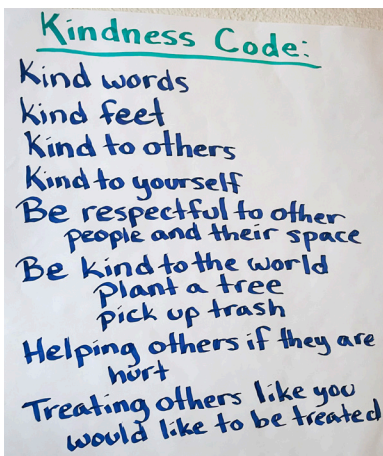 Kindness Code:
Kind words
Kind feet
Kind to others
Kind to yourself
Be respectful to other
people and their space
Be kind to the world
plant a tree
pick up trash
Helping others if they are
hurt
Treating others like you
would like to be treated